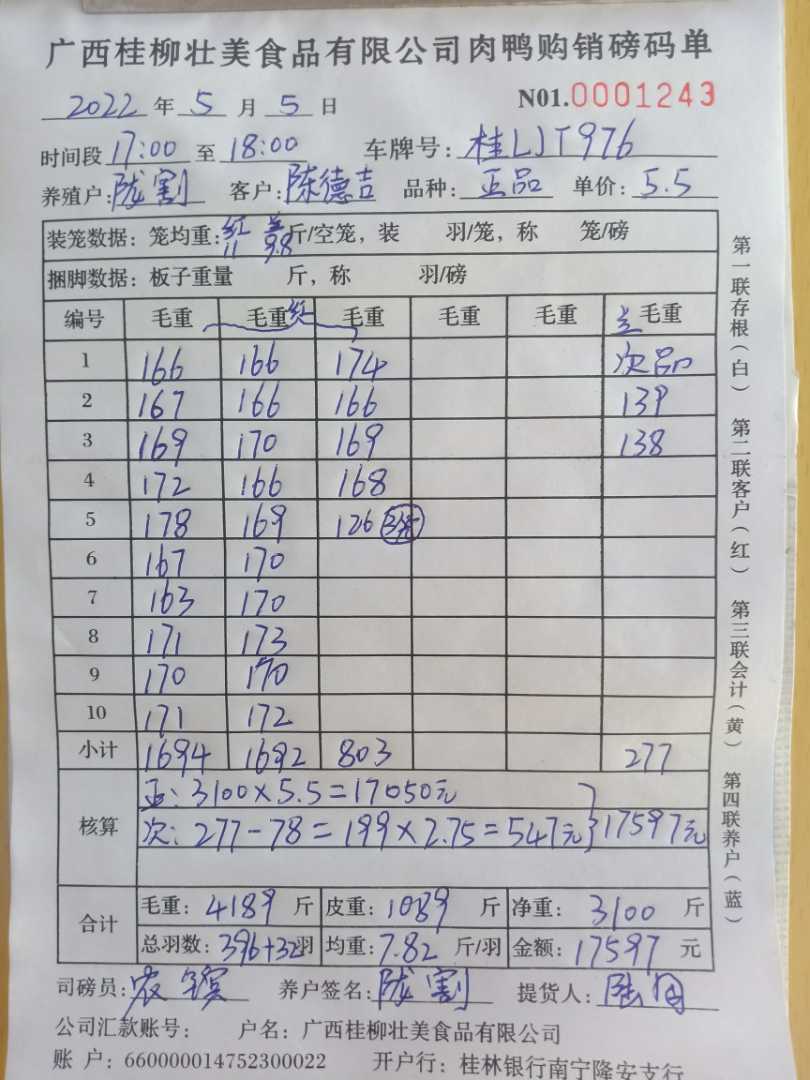 广西桂柳壮美食品有限公司肉鸭购销磅码单
2022 年 5 月 5 日 N01.0001243
时间段 17:00 至 18:00 车牌号: 桂LJT976
养殖户: 陇割 客户: 陈德吉 品种: 正品 单价: 5.5
装笼数据: 笼均重: 红 11 9.8 斤/空笼, 装 羽/笼, 称 笼/磅
捆脚数据: 板子重量 斤, 称 羽/磅
编号 毛重 毛重 红 毛重 毛重 毛重 毛重
1 166 166 174 次品
2 167 166 166 139
3 169 170 169 138
4 172 166 168
5 178 169 126
6 167 170
7 163 170
8 171 173
9 170 170
10 171 172
小计 1694 1692 803 277
核算
正: 3100×5.5=17050元
次: 277-78=199×2.75=547元 } 17597元
合计
毛重: 4189 斤 皮重: 1089 斤 净重: 3100 斤
总羽数: 396+32羽 均重: 7.82 斤/羽 金额: 17597 元
司磅员: 养户签名: 陇割 提货人:
公司汇款账号: 户名: 广西桂柳壮美食品有限公司
账 户: 660000014752300022 开户行: 桂林银行南宁隆安支行
第一联存根(白) 第二联客户(红) 第三联会计(黄) 第四联养户(蓝)